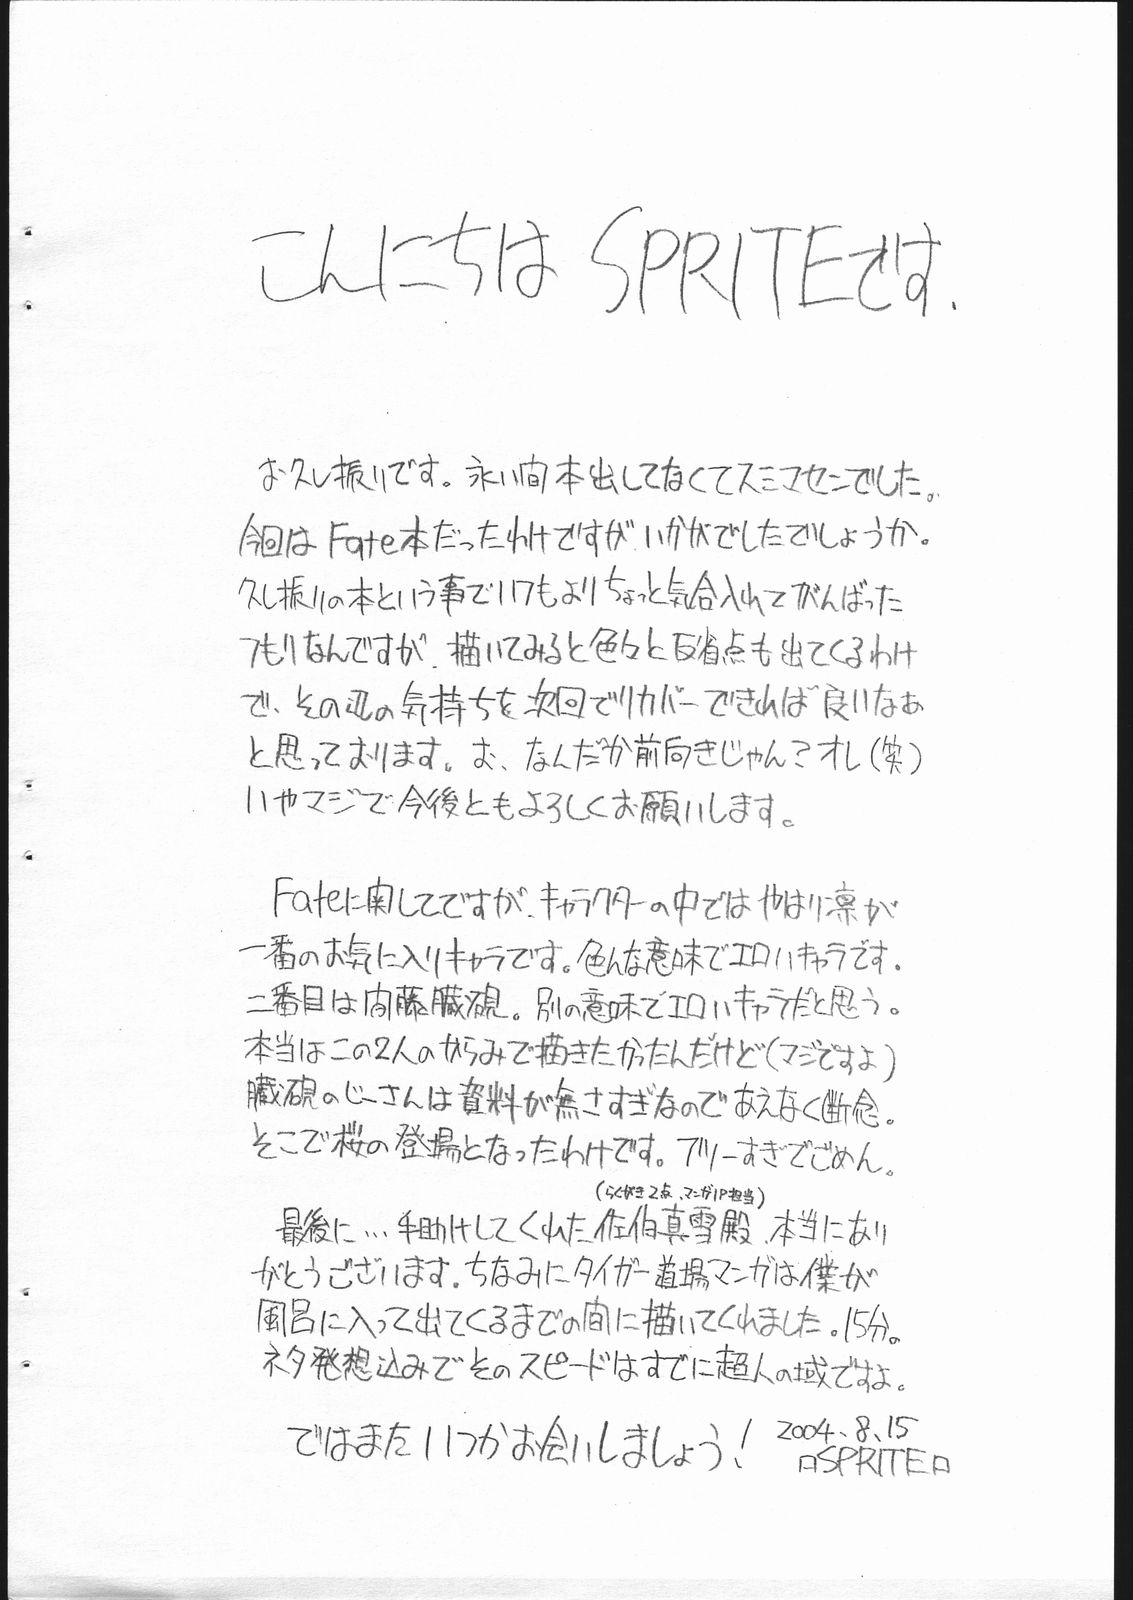 こんにちは SPRITEです.
お久し振りです。永い間本出してなくてスミマセンでした。
今回はFate本だったわけですが、いかがでしたでしょうか。
久し振りの本という事でいつもよりちょっと気合入れてがんばった
つもりなんですが、描いてみると色々と反省点も出てくるわけ
で、その辺の気持ちを次回でリカバーできれば良いなぁ
と思っております。お、なんだか前向きじゃん?オレ(笑)
いやマジで今後ともよろしくお願いします。
Fateに関してですが、キャラクターの中ではやはり凛が
一番のお気に入りキャラです。色んな意味でエロいキャラです.
二番目は間藤臓硯。別の意味でエロいキャラだと思う。
本当はこの2人のからみで描きたかったんだけど(マジですよ)
臓硯のじーさんは資料が無さすぎなのであえなく断念。
そこで桜の登場となったわけです。フツーすぎでごめん。
(らくがき2点、マンガ1P担当)
最後に…手助けしてくれた佐伯真雪殿、本当にあり
がとうございます。ちなみにタイガー道場マンガは僕が
風呂に入って出てくるまでの間に描いてくれました。15分。
ネタ発想込みでそのスピードはすでに超人の域ですよ。
ではまたいつかお会いしましょう! 2004、8、15
ロSPRITEロ